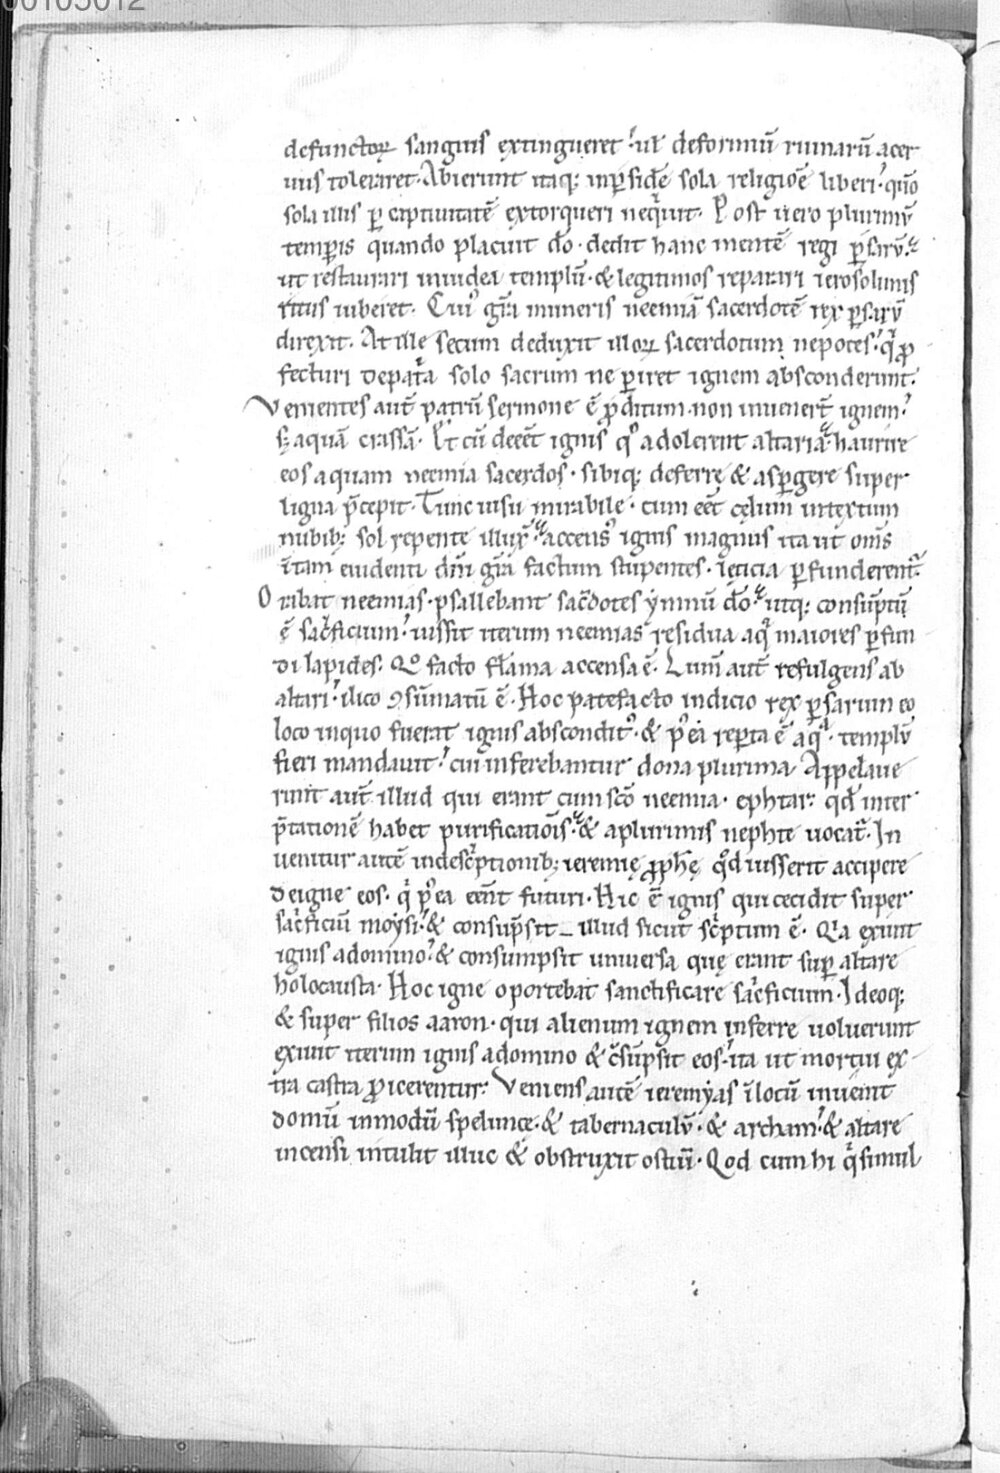 00105012
defunctoꝝ sanguis extingueret. ul̄ deformiū ruinarū acer
uus toleraret. Abierunt itaq; inꝑsidē sola religiōe liberi. quō
sola illis ꝑ captiuitatē extorqueri nequiuit. Post uero plurimū
temporis quando placuit dō. dedit hanc mentē regi ꝑsarū.
ut restaurari iniudea templū. & legitimos reparari ierosolimis
ritus iuberet. Cuiꝰ grā muneris neemiā sacerdotē rex ꝑsarū
direxit. At ille secum deduxit illoꝝ sacerdotum nepotes. qui ꝓ
fecturi depatⁱa solo sacrum ne ꝑiret ignem absconderunt.
Venientes aut̄ patrū sermone ē ꝓditum. non inuenert̄ ignem.
sꝫ aquā crassā. Et cū deēet ignis qͦ adolerent altaria. haurire
eos aquam neemia sacerdos. sibiq; deferre & aspergere super
ligna p̄cepit. Tunc uisu mirabile. cum eēt cęlum intextum
nubibꝫ sol repente illux̄. accensꝰ ignis magnus ita ut om̄s
ītam euidenti dn̄i grā factum stupentes. lęticia ꝑfunderent̄.
Orabat neemias. psallebant sac̄dotes ẏmnū dō. utq; consūptū
ē sacⁱficium. iussit iterum neemias residua aqͣ maiores ꝑfun
di lapides. Qͦ facto flāma accensa ē. Lum̄ aut̄ refulgens ab
altari. ilico ꝯsūmatū ē. Hoc patefacto indicio rex ꝑsarum eo
loco inquo fuerat ignis absconditꝰ. & pꝰea reꝑta ē aqͣ. templū
fieri mandauit. cui inferebantur dona plurima. Appellaue
runt aut̄ illud qui erant cum scō neemia. ephtar. qd̄ inter
p̄tationē habet purificatiōis. & aplurimis nephte uocat̄. In
uenitur autē indescⁱptionibꝫ ieremię ꝓphę qͦd iusserit accipere
deigne eos. qⁱ pꝰea eēnt futuri. Hic ē ignis qui cecidit super
sacⁱficiū moẏsi. & consūpsit illud sicut scⁱptum ē. Qia exiuit
ignis adomino. & consumpsit uniuersa quę erant suꝑ altare
holocausta. Hoc igne oportebat sanctificare sacⁱficium. Ideoq;
& super filios aaron. qui alienum ignem inferre uoluerunt
exiuit iterum ignis adomino & cōsūpsit eos. ita ut mortui ex
tra castra ꝓicerentur. Veniens autē ieremẏas īlocū inuenit
domū inmodū speluncę. & tabernaculū. & archam. & altare
incensi intulit illuc & obstruxit ostiū. Qod cum hi qⁱ simul